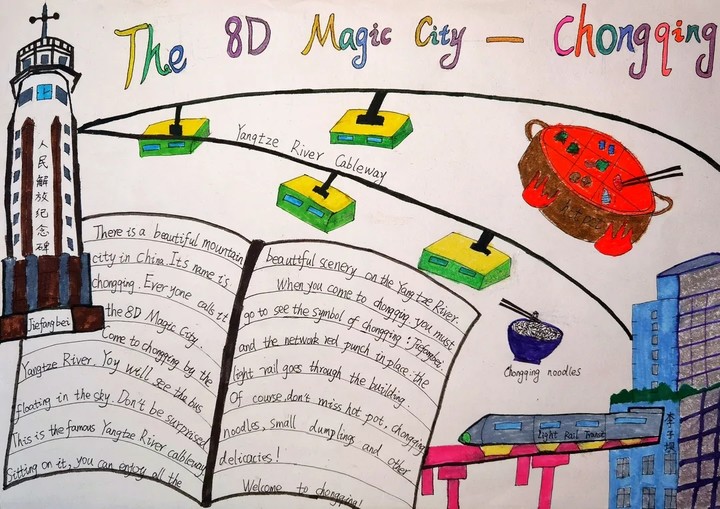 The 8D Magic City — Chongqing
Yangtze River Cableway
人民解放纪念碑
Jiefangbei
There is a beautiful mountain
city in China. Its name is
chongqing. Everyone calls it
the 8D Magic City.
Come to chongqing by the
Yangtze River. Yoy will see the bus
floating in the sky. Don't be surprised
This is the famous Yangtze River cableway
Sitting on it, you can enjoy all the
beautiful scenery on the Yangtze River.
When you come to chongqing, you must
go to see the symbol of chongqing: Jiefangbei.
and the network red punch in place: the
light rail goes through the building.
Of course, don't miss hot pot, chongqing
noodles, small dumplings and other
delicacies!
Welcome to chongqing!
Chongqing noodles
Light Rail Transit
李子坝